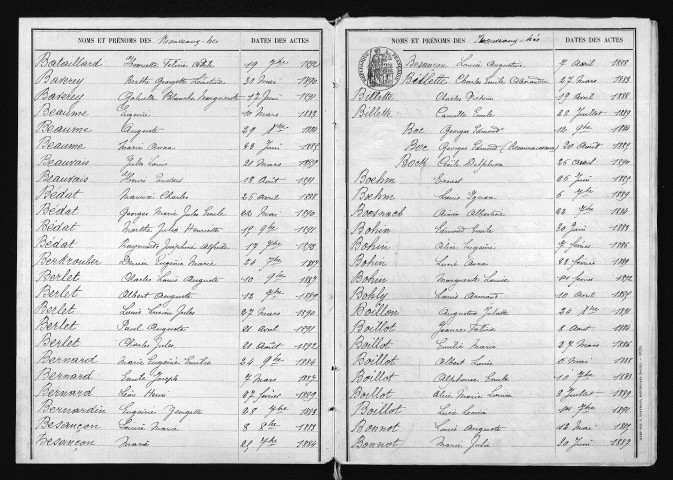 NOMS ET PRÉNOMS DES Nouveaux-nés DATES DES ACTES
Bataillard 19 7bre 1892
Baverey Berthe Georgette 28 Mai 1890
Baverey Gabrielle Blanche Marguerite 17 Juin 1891
Beaume Eugénie 10 Mars 1883
Beaume Auguste 29
Beaume Maria Anna Juin 1885
Beauvais Jules Louis 21 Mars 1889
Beauvais Henri 18 Août 1891
Bédat Maurice Charles 26 Avril 1888
Bédat Georges Marie Jules Emile 22 Mai 1890
Bédat Marthe Julia Henriette 15 9bre 1891
Bédat Raymonde Joséphine 17
Berkrouber Denise Eugénie Marie 24 7bre
Berlet Charles Louis Auguste 10 9bre 1887
Berlet Albert Auguste 12 1889
Berlet Louis Lucien Jules 27 Mars 1890
Berlet Paul Auguste 21 Avril 1891
Berlet Charles Jules 21 Août 1892
Bernard Marie Eugénie Emilie 24 9bre 1884
Bernard Emile Joseph 7 Mars 1887
Bernard Léon Henri 27 février 1889
Bernardin Eugénie 28 7bre 1883
Besançon Louise Marie 8 8bre 1883
Besançon Maria 25 7bre 1884
NOMS ET PRÉNOMS DES Nouveaux-nés DATES DES ACTES
Besançon Louis Augustine 7 Avril 1888
Billette Charles Emile Alexandre 27 Mars 1883
Billette Charles Victoria 19 Avril 1888
Billette Camille Emile 28 Juillet 1889
Boc Georges Edmond 12 9bre 1884
Boc Georges Edmond 20 Août
Bock Cécile Delphine 26 Avril 1890
Boehm Ernest 26 Juin
Boehm Louis 6 7bre 1889
Boesnach Aimée Albertine 22 7bre 1884
Bohin Edmond Emile 30 Juin 1883
Bohin Alice Eugénie 9 février 1886
Bohin Lucie Anna 22 février
Bohin Marguerite Louise février 1892
Bohly Louis Armand 10 Avril 1887
Boillon Augusta Juliette 24 1891
Boillot Jeanne 8 Août 1884
Boillot Emilie Marie 27 Mars 1886
Boillot Albert Louis 6 Mai 1888
Boillot Alphonse Emile 10 7bre 1888
Boillot Alice Marie Louise 8 Juillet 1889
Boillot Lucie Louise 7bre 1891
Bonnot Louis Auguste 12 Mai 1887
Bonnot Marie Julie 30 Juin 1889